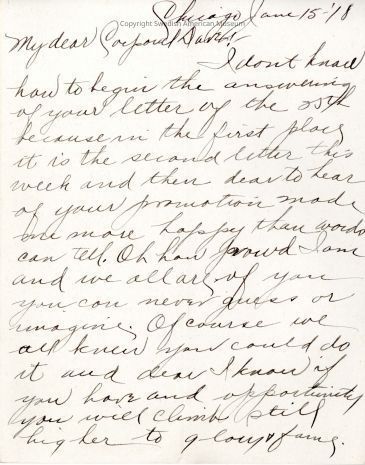 Chicago Jan 15 '18
Copyright Swedish American Museum
My dear Corporal
I dont know
how to begin the answering
of your letter of the 25th
because in the first place
it is the second letter this
week and then dear to hear
of your promotion made
me more happy than words
can tell. Oh how proud I am
and we all are, of you
you can never guess or
imagine. Of course we
all knew you could do
it and dear I know if
you have and opportunity
you will climb still
higher to glory & fame.